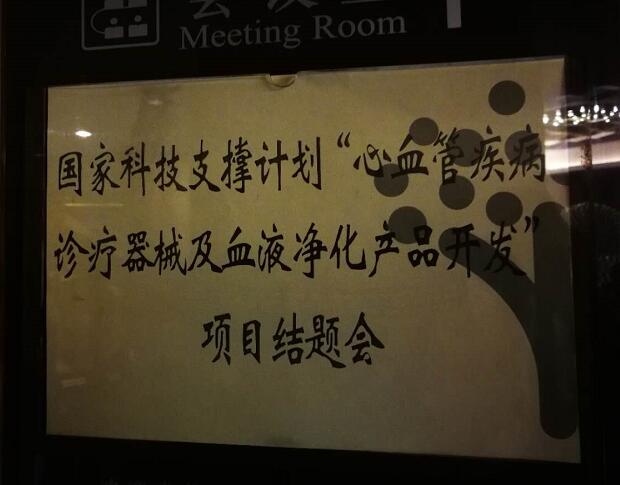 会议室
Meeting Room
国家科技支撑计划“心血管疾病
诊疗器械及血液净化产品开发”
项目结题会